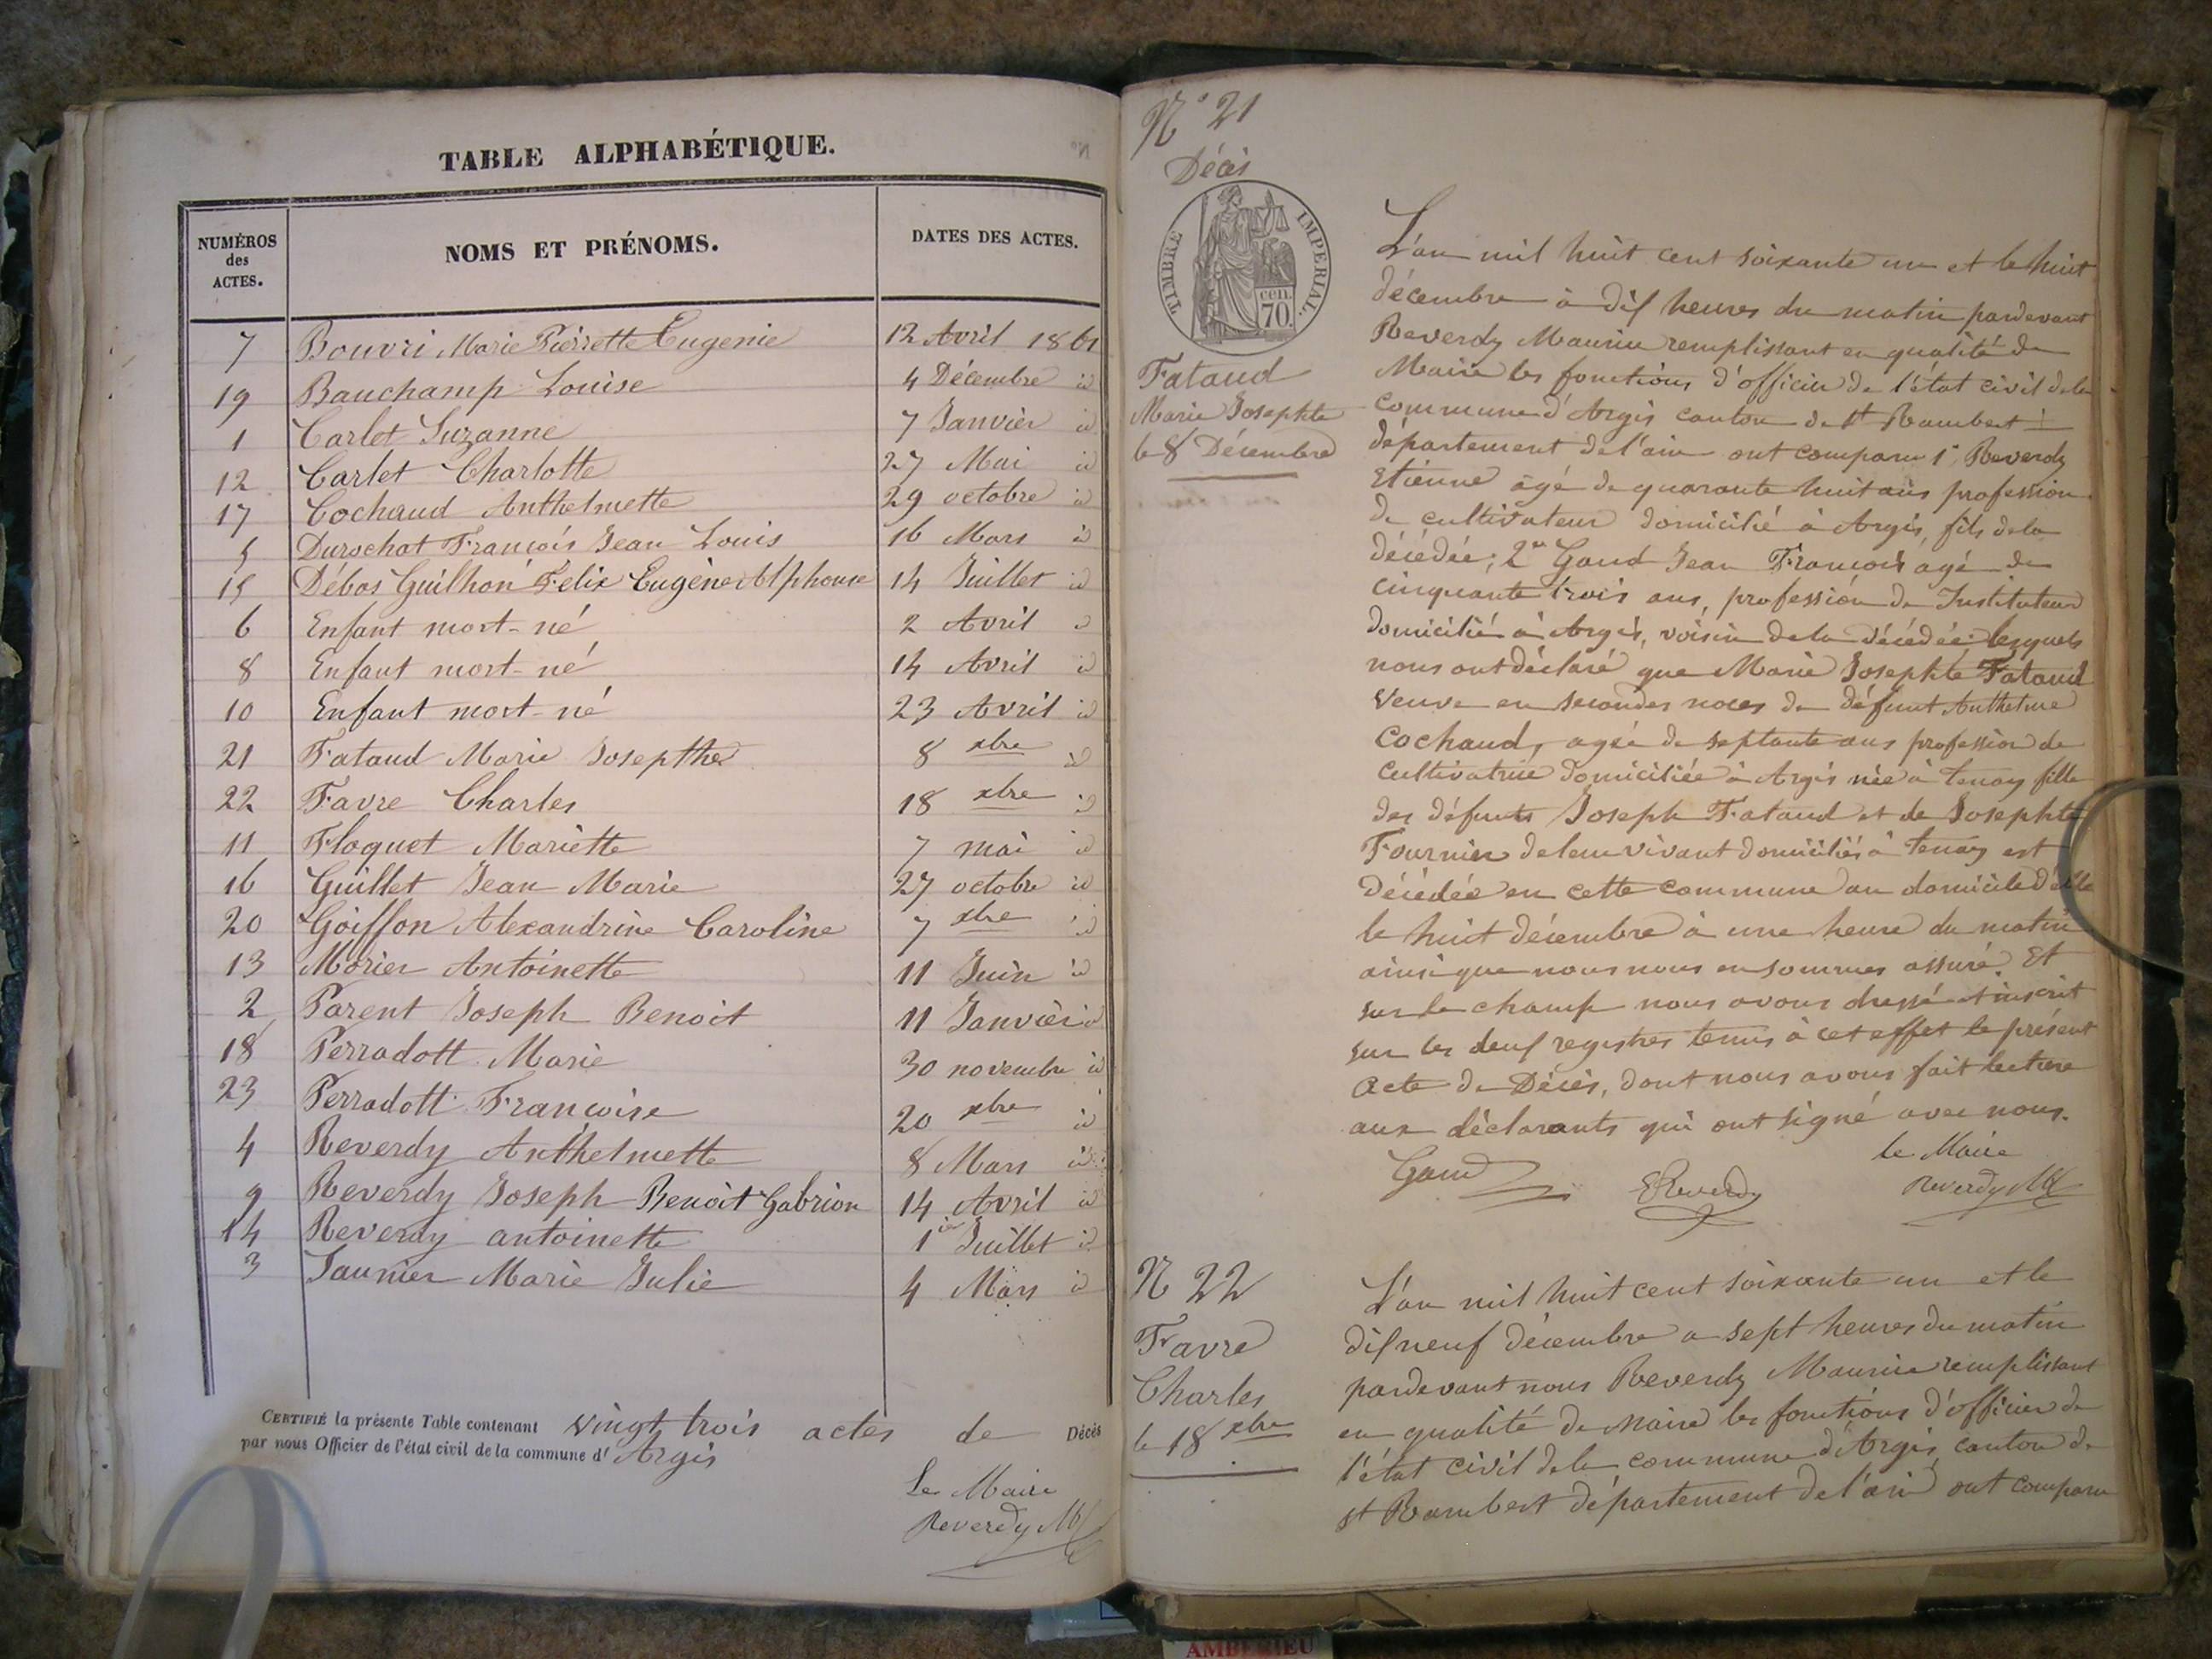 TABLE ALPHABÉTIQUE.
NUMÉROS des ACTES. NOMS ET PRÉNOMS. DATES DES ACTES.
7 Bouvri Marie Pierrette Eugenie 12 Avril 1861
19 Bauchamp Louise 4 Décembre id
1 Carlet Suzanne 7 Janvier id
12 Carlet Charlotte 27 Mai id
17 Cochaud Anthelmette 29 octobre id
5 Durochat François Jean Louis 16 Mars id
15 Débos Guilhon Felix Eugène Alphonse 14 Juillet id
6 Enfant mort-né 2 Avril id
8 Enfant mort-né 14 Avril id
10 Enfant mort-né 23 Avril id
21 Fataud Marie Josepthe 8 xbre id
22 Favre Charles 18 xbre id
11 Floquet Mariette 7 mai id
16 Guillet Jean Marie 27 octobre id
20 Goiffon Alexandrine Caroline 7 xbre id
13 Morier Antoinette 11 Juin id
2 Parent Joseph Benoit 11 Janvier id
18 Perradott Marie 30 novembre id
23 Perradott Françoise 20 xbre id
4 Reverdy Anthelmette 8 Mars id
9 Reverdy Joseph Benoit Gabrion 14 Avril id
14 Reverdy antoinette 1er Juillet id
3 Saunier Marie Julie 4 Mars id
CERTIFIÉ la présente Table contenant vingt trois actes de Décès
par nous Officier de l'état civil de la commune d' Argis
Le Maire
Reverdy M
N° 21
Décès
TIMBRE IMPÉRIAL.
cen.
70.
Fataud
Marie Josephte
le 8 Décembre
L'an mil huit cent soixante un et le huit
décembre à dix heures du matin pardevant
Reverdy Maurice remplissant en qualité de
Maire les fonctions d'officier de l'état civil de la
commune d'Argis canton de St Rambert
département de l'ain ont comparu 1° Reverdy
Etienne âgé de quarante huit ans profession
de cultivateur domicilié à Argis, fils de la
décédée; 2° Gaud Jean François agé de
cinquante trois ans, profession de Instituteur
domicilié à Argis, voisin de la décédée lesquels
nous ont déclaré que Marie Josephte Fataud
veuve en secondes noces de défunt Anthelme
Cochaud, agée de septante ans profession de
cultivatrice domiciliée à Argis née à tenay fille
des défunts Joseph Fataud et de Josephte
Fournier de leur vivant domiciliés à tenay est
décédée en cette commune au domicile d'elle
le huit décembre à une heure du matin
ainsi que nous nous en sommes assuré. Et
sur le champ nous avons dressé et inscrit
sur les deux registres tenus à cet effet le présent
acte de Décès, dont nous avons fait lecture
aux déclarants qui ont signé avec nous.
le Maire
Gaud EReverdy Reverdy M
N 22
Favre
Charles
le 18 xbre
L'an mil huit cent soixante un et le
dix neuf décembre a sept heures du matin
pardevant nous Reverdy Maurice remplissant
en qualité de Maire les fonctions d'officier de
l'état civil de la commune d'Argis, canton de
st Rambert département de l'ain ont comparu
AMBERIEU